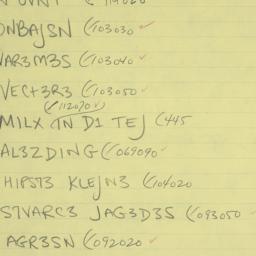 ONBAJSN (103030 ✓
VAR3M3S (103040 ✓
VEC+3R3 (103050 ✓
(112070 ✓)
MILX TN D1 TEJ (445
AL3ZDING (069090 ✓
HIPST3 KLEJN3 (104020
STVARC3 JAG3D3S (093050 ✓
AGR3SN (092020 ✓